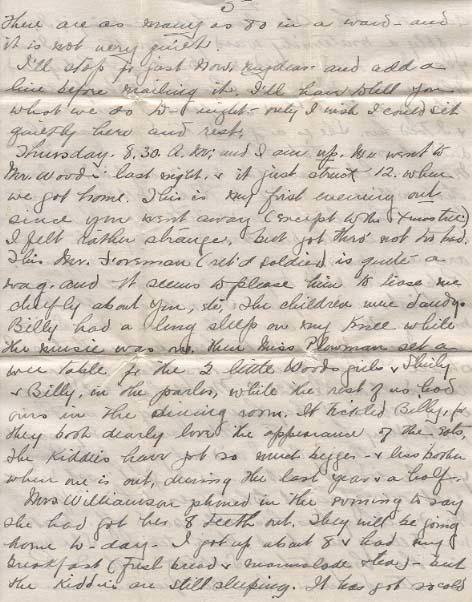 5-
There are as many as 80 in a ward - and
it is not very quiet.
I'll stop for just now, my dear - and add a
line before mailing it. I'll have to tell you
what we do to-night - only I wish I could sit
quietly here and rest.
Thursday. 8.30. A.M. and I am up. We went to
Mr. Woods' last night, & it just struck 12. when
we got home. This is my first evening out
since you went away (except to the Xmas tree)
I felt rather strange, but got thro' not too bad.
This Mr. Forsman (ret'd soldier) is quite a
wag. and it seems to please him to tease me
chiefly about you, etc. The children were dandy.
Billy had a long sleep on my knee while
the music was on. then Miss Plowman set a
wee table for the 2 little Woods girls &
& Billy, in the parlor, while the rest of us had
ours in the dining room. It tickled Billy, for
they both dearly love the appearance of the
The kiddies have got so much bigger - & less bother
when one is out, during the last year & a half.
Mrs Williamson phoned in the evening to say
she had got her 8 teeth out. They will be going
home to-day - I got up about 8 & had my
breakfast (fresh bread & marmalade & tea) - but
the kiddies are still sleeping. It has got so cold